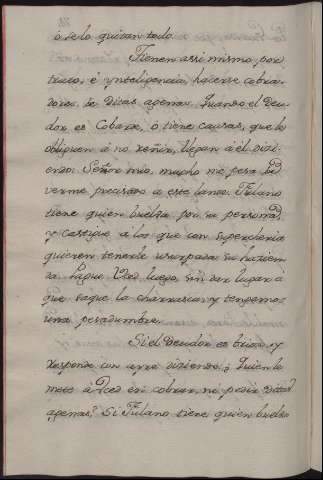 ò se lo quitan todo.
Tienen assi mismo, por
trato, è ynteligencia, hacerse cobra-
dores de Ditas agenas. Quando el Deu-
dor es Cobarde, ò tiene causas, que le
obliguen à no reñir, llegan à èl dizi-
endo: Señor mio, mucho me pesa
verme precisado a este lance. Fulano
tiene quien buelva por su persona,
y castigue a los que con supercheria
quieren tenerle usurpada su hazien-
da. Pague Vced luego, sin dar lugar à
que saque la charrasca, y tengamos
una pesadumbre.
Si el Deudor es brioso, y
responde con ayre diziendo: ¿Quien le
mete à Vced en cobrar, ni pedir Ditas
agenas? Si Fulano tiene quien buelva